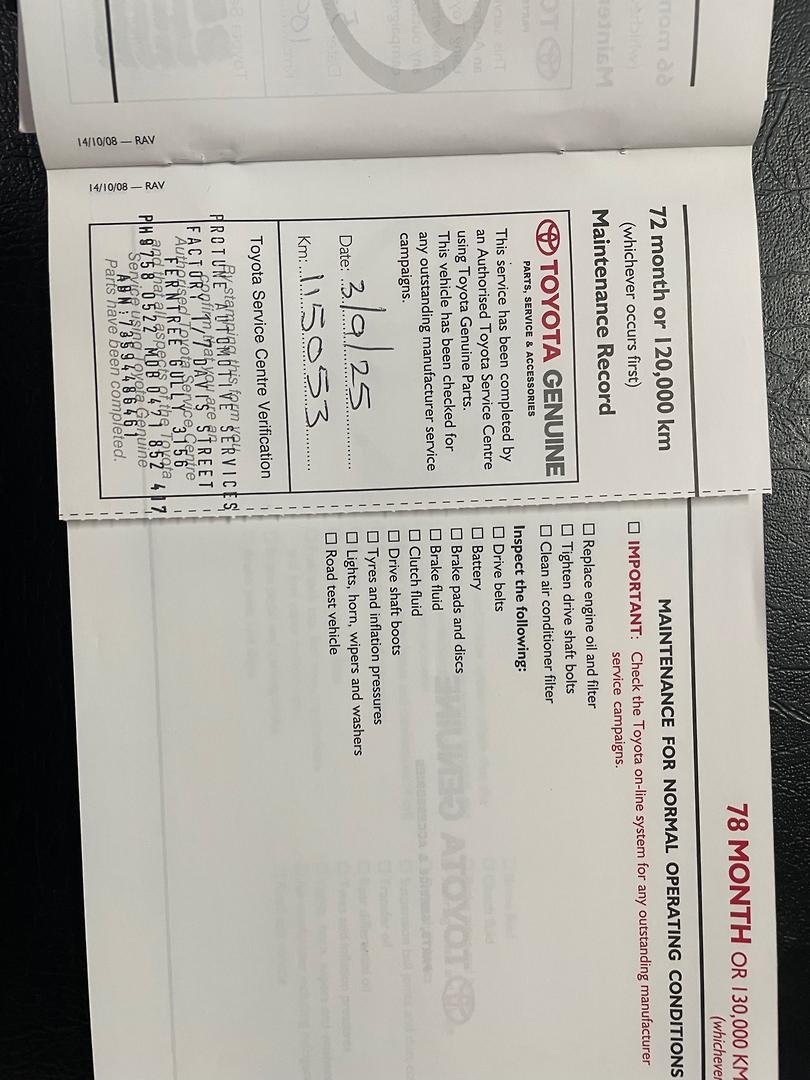 14/10/08 — RAV
14/10/08 — RAV
72 month or 120,000 km
(whichever occurs first)
Maintenance Record
TOYOTA GENUINE
PARTS, SERVICE & ACCESSORIES
This service has been completed by
an Authorised Toyota Service Centre
using Toyota Genuine Parts.
This vehicle has been checked for
any outstanding manufacturer service
campaigns.
Date: 3/9/25
Km: 115053
Toyota Service Centre Verification
By stamping this form you
confirm that you are an
Authorised Toyota Service Centre
and that all aspects of the Toyota
Service using Toyota Genuine
Parts have been completed.
PROTUNE AUTOMOTIVE SERVICES
FERNTREE GULLY 3156
78 MONTH OR 130,000 KM
(whichever
MAINTENANCE FOR NORMAL OPERATING CONDITIONS
☐ IMPORTANT: Check the Toyota on-line system for any outstanding manufacturer
service campaigns.
☐ Replace engine oil and filter
☐ Tighten drive shaft bolts
☐ Clean air conditioner filter
Inspect the following:
☐ Drive belts
☐ Battery
☐ Brake pads and discs
☐ Brake fluid
☐ Clutch fluid
☐ Drive shaft boots
☐ Tyres and inflation pressures
☐ Lights, horn, wipers and washers
☐ Road test vehicle